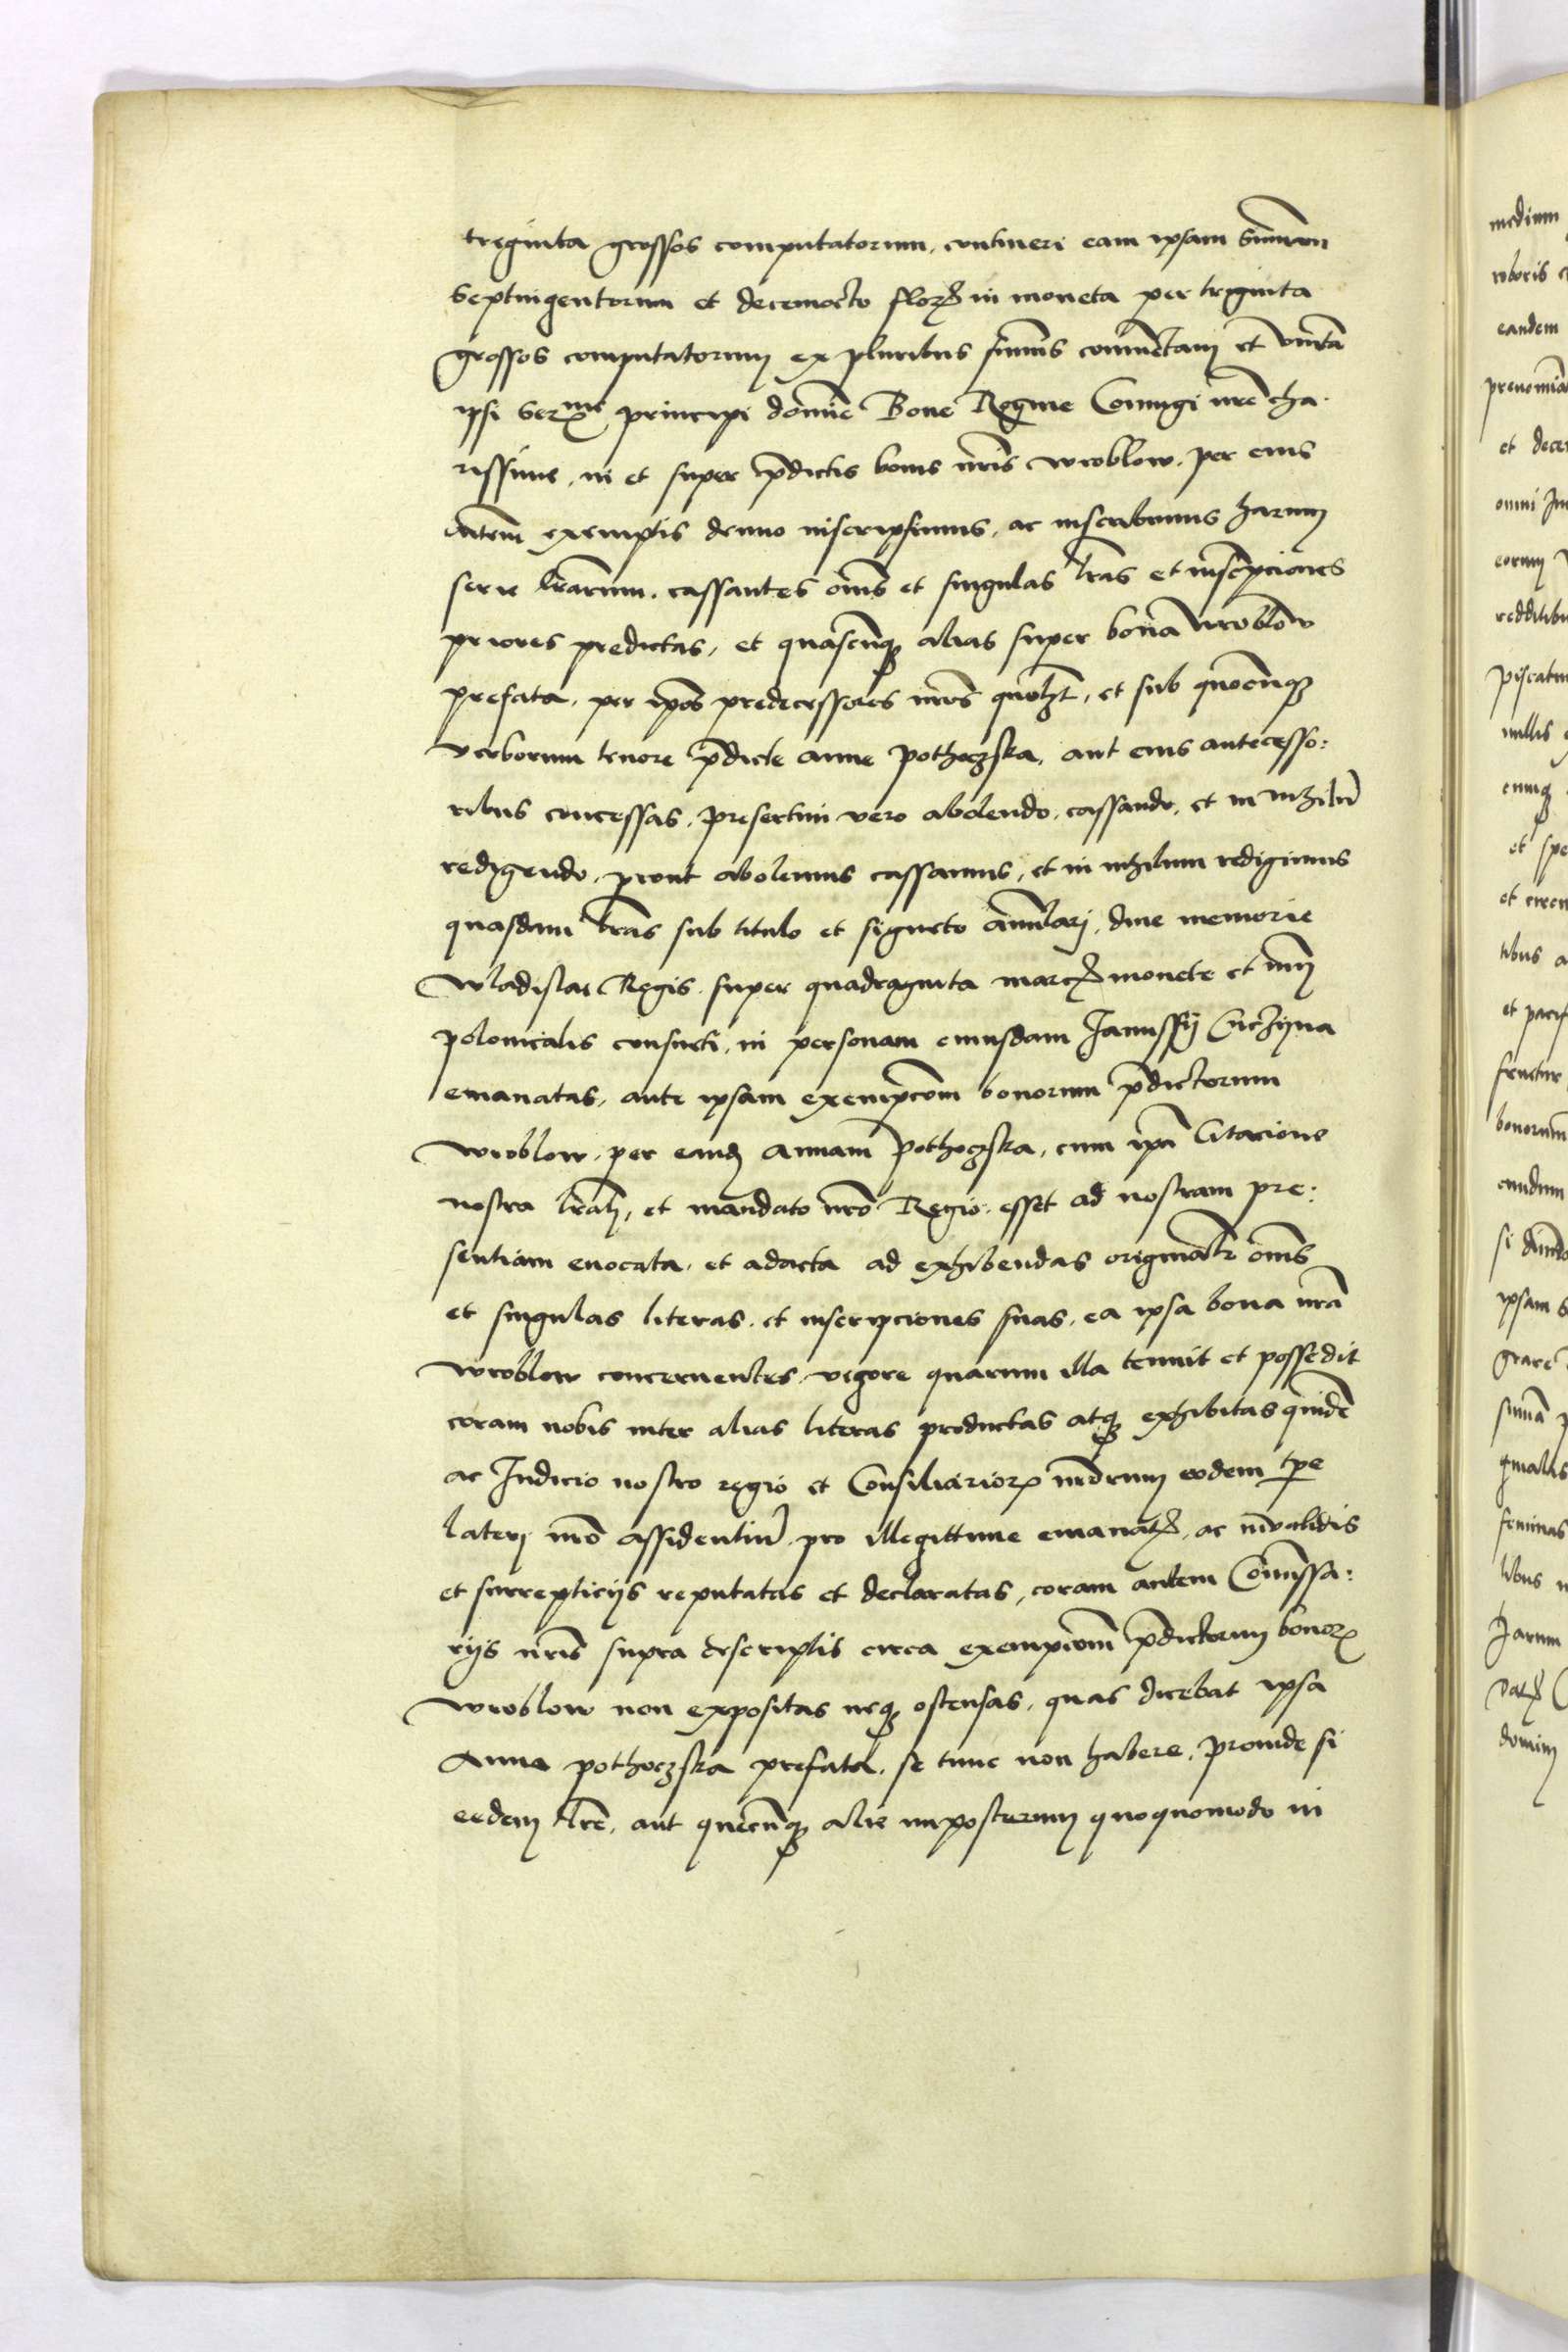 treginta grossos computatorum, contineri eam ipsam Sūmam
Septingentorum et decemocto floꝝ in moneta per triginta
grossos computatorum ex pluribus sūmis conuētam et vnitā
ipsi Serᵐᵉ principi domīe Bone Regine Coniugi nr̄e cha-
rissime, in et super p̄dictis bonis nr̄is wroblow, per eius
exemptis denuo inscripsimus, ac inscribimus harum
serie lr̄arum, cassantes om̄s et singulas lr̄as et inscrip̄ciones
priores predictas, et quascūqꝫ alias super bona wroblow
prefata, per ip̄os predecessores nr̄os et sub quocūqꝫ
verborum tenore p̄dicte anne pothoczska, aut eius antecesso:
ribus concessas, presertim vero abolendo, cassando, et in nihilū
redigendo, prout abolemus cassamus, et in nihilum redigimus
quasdam lr̄as sub titulo et signeto annulari, diue memorie
Wladislai Regis super quadraginta marcꝝ monete et
polonicalis consueti, in personam cuiusdam Janussij
emanatas, ante ipsam exempc̄om bonorum p̄dictorum
wroblow, per eandꝫ Annam Pothoczska, cum ip̄a Citacione
nostra lr̄ali, et mandato nr̄o Regio esset ad nostram pre:
sentiam euocata, et adacta ad exhibendas originalr̄ om̄s
et singulas literas, et inscripciones suas, ea ipsa bona nr̄a
wroblow concernentes, vigore quarum illa tenuit et possedit
coram nobis inter alias literas productas atqꝫ exhibitas quidē
ac Iudicio nostro regio et Consiliarioꝝ nostrorum eodem tp̄e
lateri nr̄o assidentiū, pro illegittime emanatꝭ, ac inualidis
et surrepticijs reputatas et declaratas, coram autem Com̄issa:
rijs nr̄is supra descriptis circa exempcionem p̄dictorum bonoꝝ
wroblow non expositas neqꝫ ostensas, quas dicebat ipsa
Anna pothoczska prefata, se tunc non habere, proinde si
eedem lr̄e, aut quecūqꝫ alie imposterum quoquomodo in